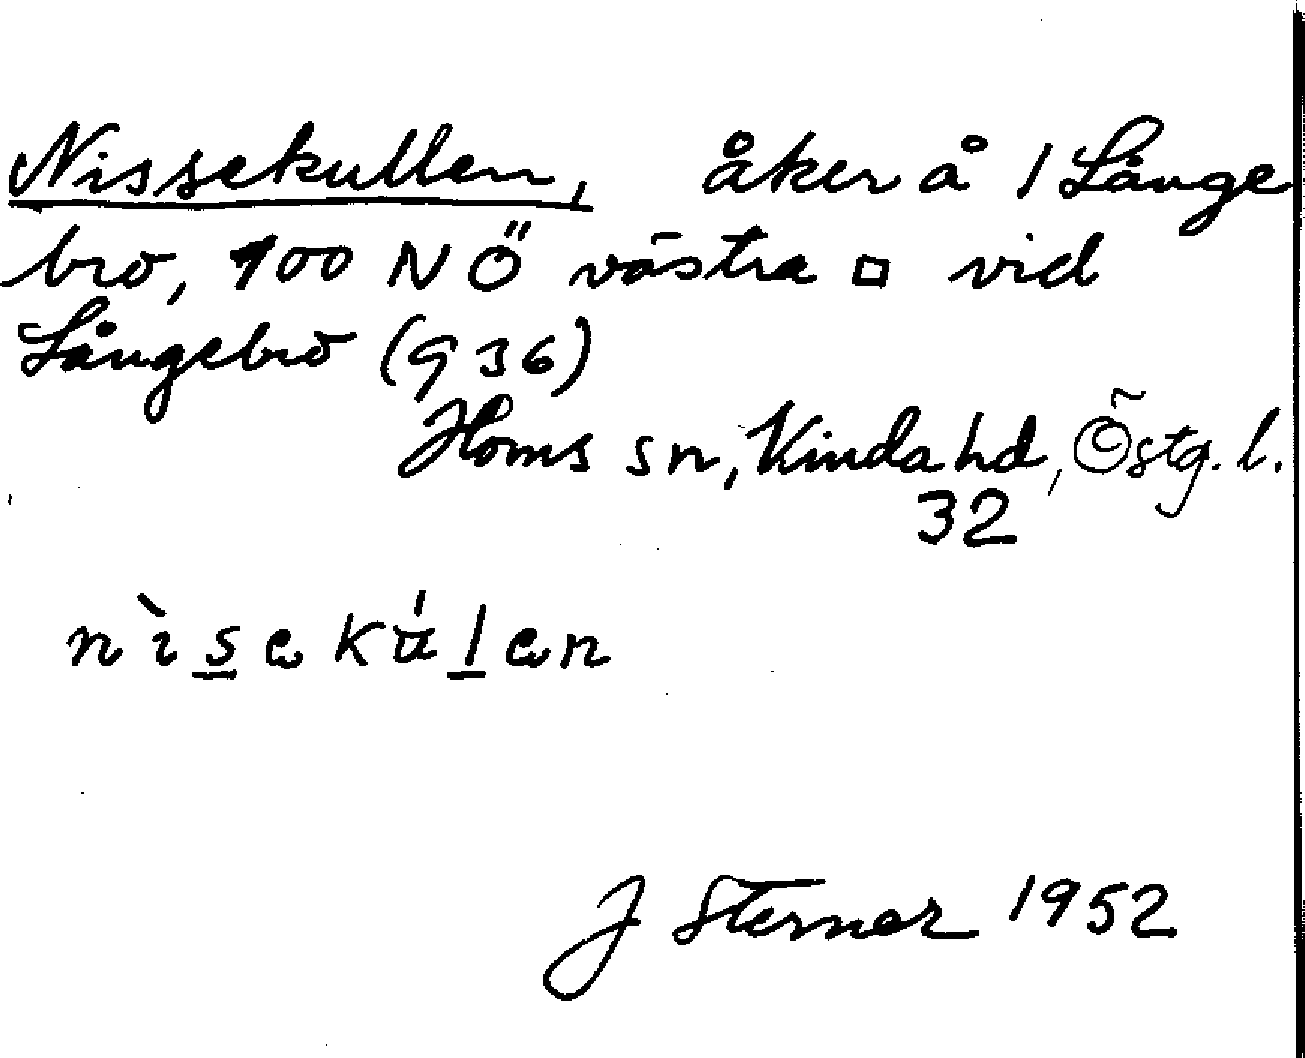 Nissekullen, åker å 1 Långe
bro, 100 NÖ västra □ vid
Långebro (936)
Horns sn, Kinda hd, Östg. l.
32
nìs̲ekúl̲en
J Sterner 1952